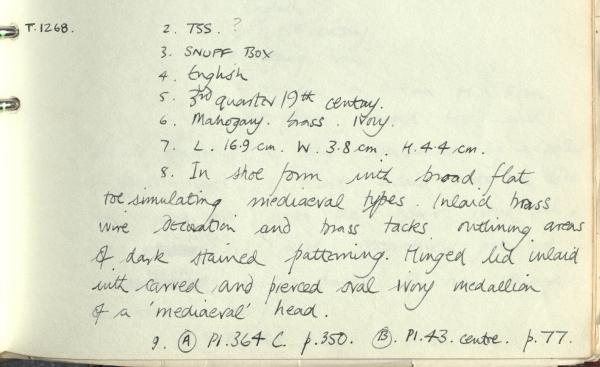 T.1268. 2. TSS. ?
3. SNUFF BOX
4. English
5. 3rd quarter 19th century.
6. Mahogany. brass. ivory.
7. L. 16.9 cm. W. 3.8 cm. H. 4.4 cm.
8. In shoe form with broad flat
toe simulating mediaeval types. Inlaid brass
wire decoration and brass tacks outlining areas
of dark stained patterning. Hinged lid inlaid
with carved and pierced oval ivory medallion
of a 'mediaeval' head.
9. (A) Pl. 364 C. p. 350. (B). Pl. 43. centre. p. 77.